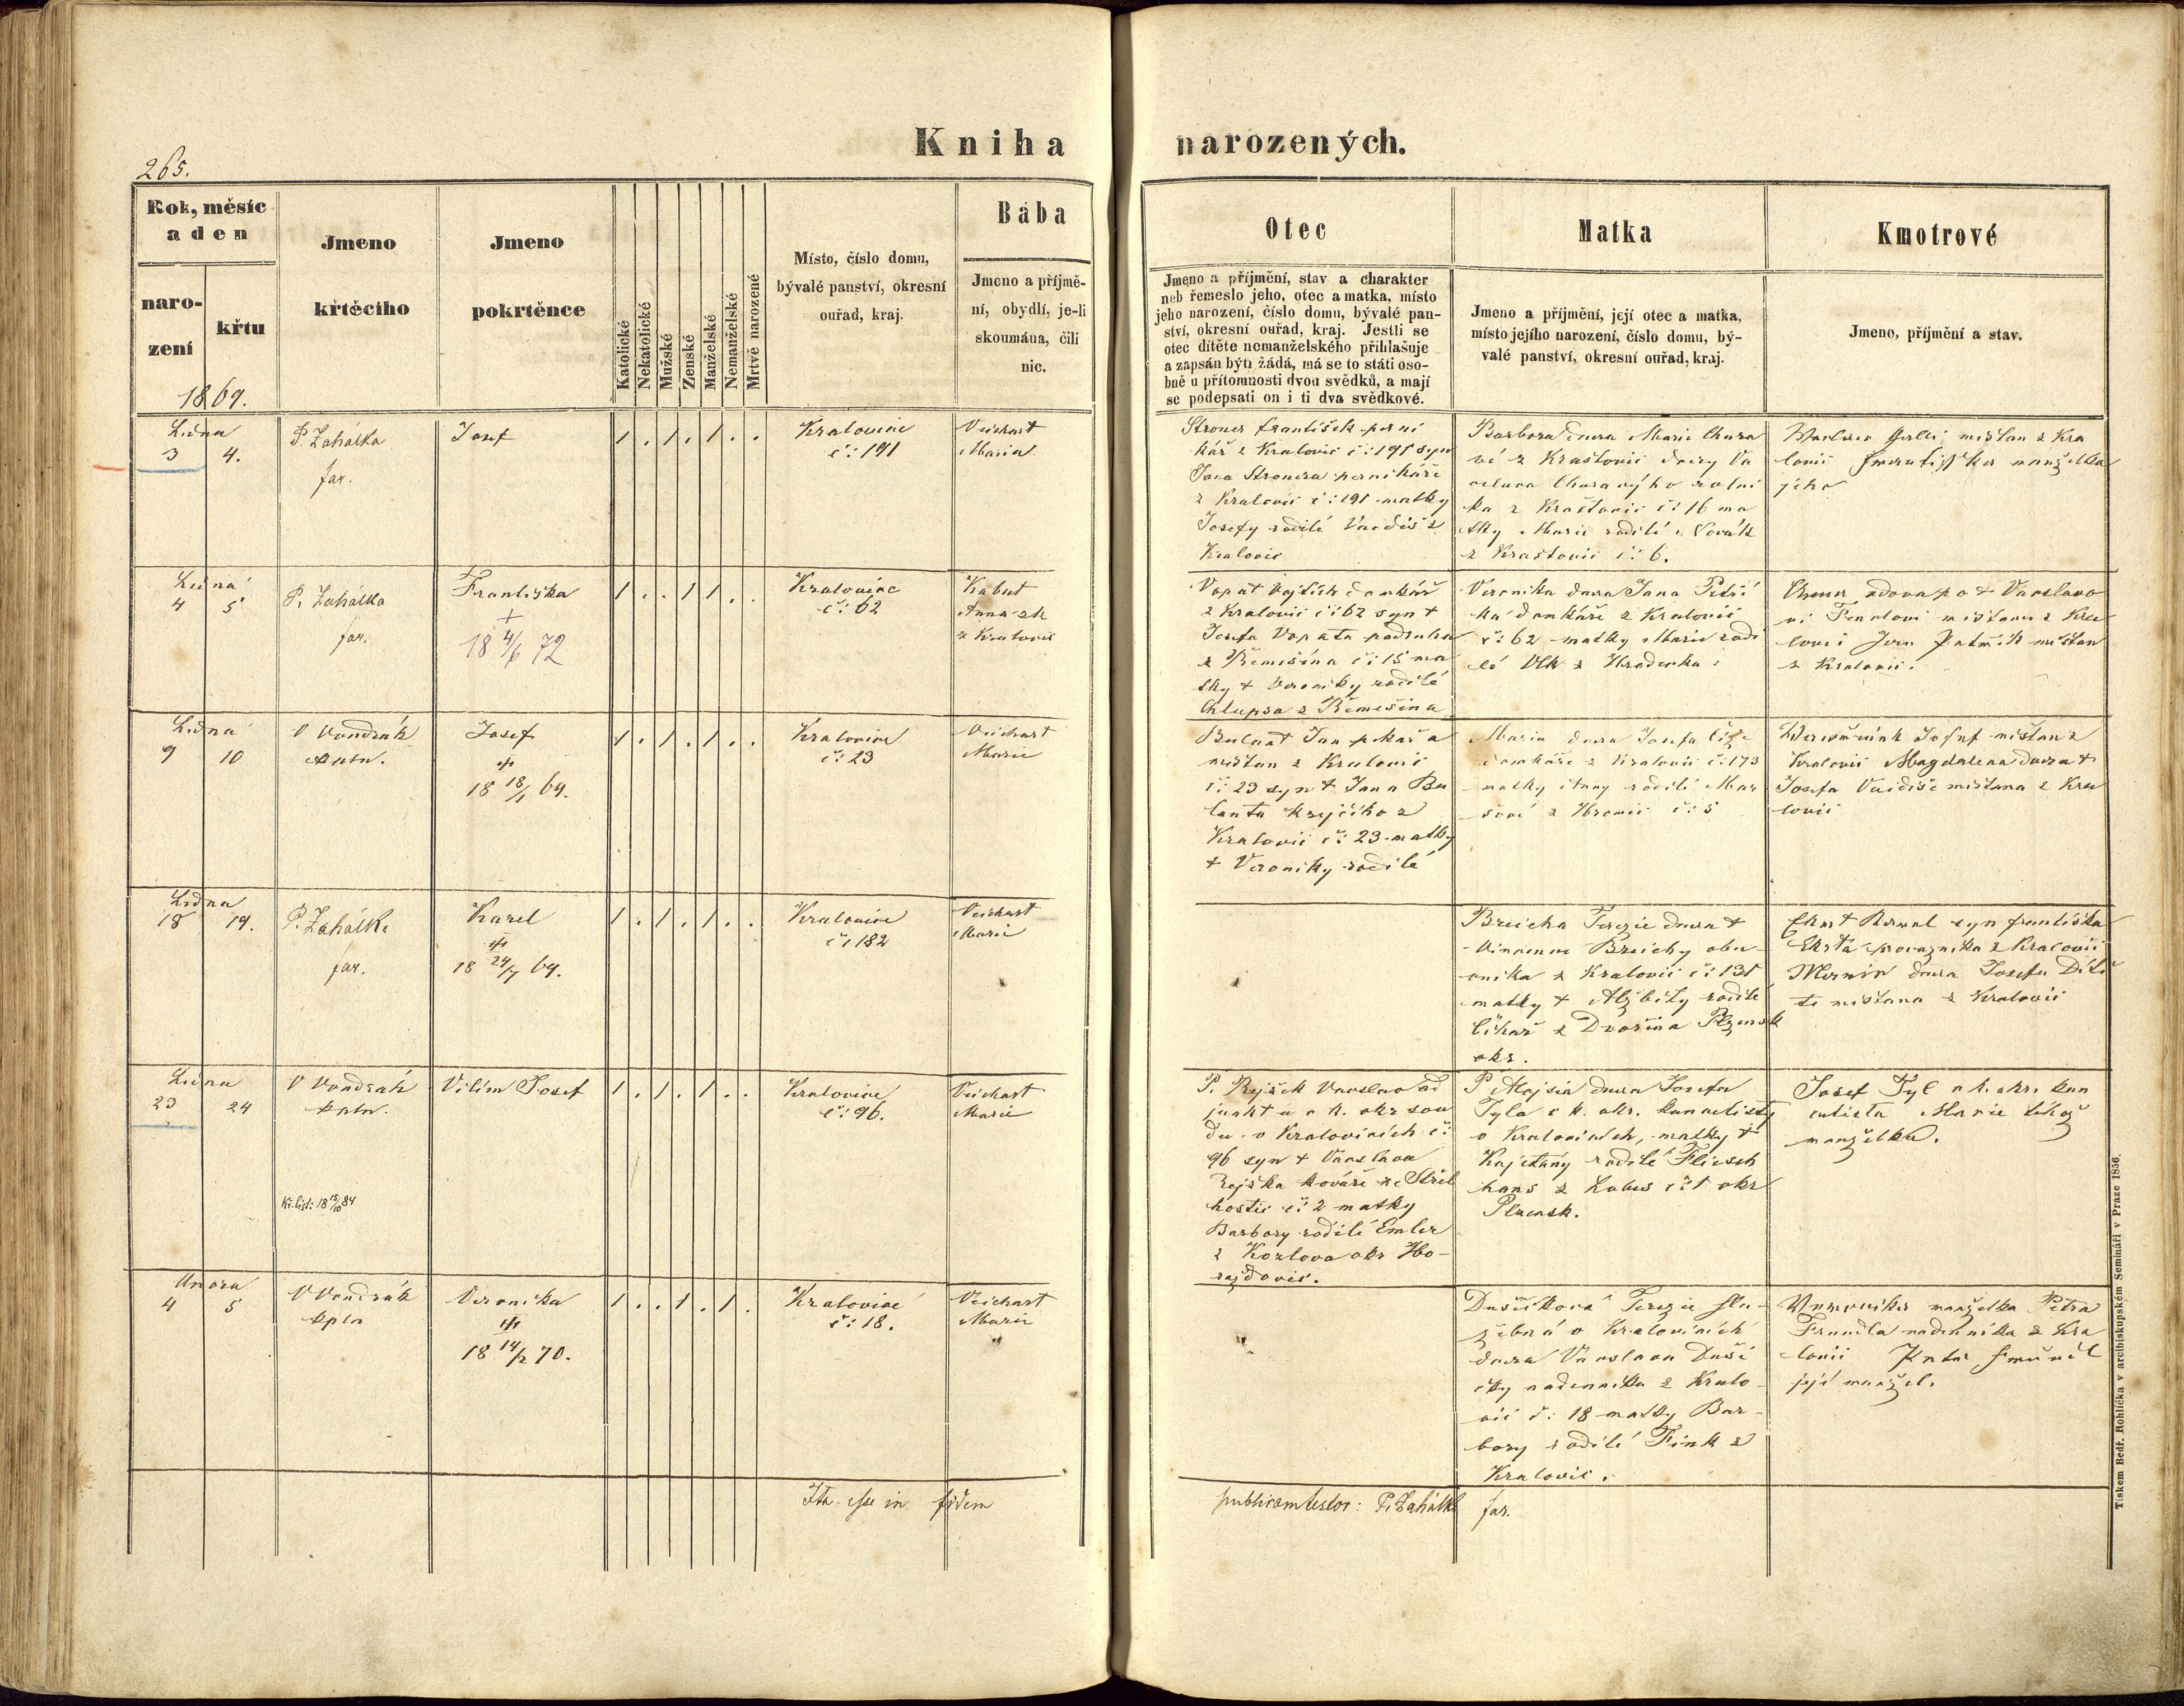 Kniha narozených.
265.
Rok, měsíc
a den
naro-
zení
křtu
1869.
Jmeno
křtěcího
Jmeno
pokrtěnce
Katolické
Nekatolické
Mužské
Ženské
Manželské
Nemanželské
Mrtvě narozené
Místo, číslo domu,
bývalé panství, okresní
ouřad, kraj.
Bába
Jmeno a příjmě-
ní, obydlí, je-li
skoumána, čili
nic.
Otec
Jmeno a příjmění, stav a charakter
neb řemeslo jeho, otec a matka, místo
jeho narození, číslo domu, bývalé pan-
ství, okresní ouřad, kraj. Jestli se
otec dítěte nemanželského přihlašuje
a zapsán býti žádá, má se to státi oso-
bně u přítomnosti dvou svědků, a mají
se podepsati on i ti dva svědkové.
Matka
Jmeno a příjmění, její otec a matka,
místo jejího narození, číslo domu, bý-
valé panství, okresní ouřad, kraj.
Kmotrové
Jmeno, příjmění a stav.
Ledna
3 4.
P. Zahálka
far.
Josef
1 . 1 . 1 . .
Kralovice
č: 191
Veichart
Maria
Stroner František perni
kář z Kralovic č: 191 syn
Jana Stronera pernikáře
z Kralovic č: 191 matky
Josefy rodilé Vaidiš z
Kralovic
Barbora dcera Marie Chura
vé z Kraštovic dcery Va
clava Churavýho rolní
ka z Kraštovic č: 16 ma
tky Marie rodilé Novák
z Kraštovic č: 6.
mišťan z Kra
lovic Františka manželka
jeho
Ledna
4 5
P. Zahálka
far.
Františka
+
18 4/6 72
1 . . 1 1 . .
Kralovice
č: 62
Kabut
Anna zk
z Kralovic
Vopat Vojtěch domkář
z Kralovic č: 62 syn +
Josefa Vopata podruha
z Řemešína č: 15 ma
tky + Veroniky rodilé
Chlupsa z Řemešína
Veronika dcera Jana Petří
ka domkáře z Kralovic
č: 62 matky Marie rodi
lé Vlk z Hradecka
vdova po + Vácslavo
vi mišťanu z Kra
lovic Jan mišťan
z Kralovic.
Ledna
9 10
V Vondrák
Josef
+
18 18/1 69.
1 . 1 . 1 . .
Kralovice
č: 23
Veichart
Marie
Bulant Jan pekař a
mišťan z Kralovic
č: 23 syn + Jana Bu
lanta krejčího z
Kralovic č: 23 matky
+ Veroniky rodilé
Maria dcera Josefa
domkáře z Kralovic č: 173
matky Anny rodilé Mar
šové z Hromic č: 5
Josef mišťan z
Kralovic Magdalena dcera +
Josefa Vaidiše mišťana z Kra
lovic
Ledna
18 19.
P. Zahálka
far.
Karel
+
18 24/7 69.
1 . 1 . 1 . .
Kralovice
č: 182
Veichart
Marie
Breicha Terezie dcera +
Breichy obu-
vníka z Kralovic č: 131
matky + Alžběty rodilé
z Plzensk
okr.
Ekert Karel syn Františka
Ekrta provazníka z Kralovic
dcera Josefa Dítě
te mišťana z Kralovic
Ledna
23 24
V Vondrák
kpln.
Vilím Josef
1 . 1 . 1 . .
Kralovice
č: 96.
Veichart
Marie
Kř. list: 18 15/10 84
P. Rejšek Vácslav ad
junkt u c k. okr sou
du v Kralovicích č:
96 syn + Vácslava
Rejška kováře ze Střel
hostic č: 2 matky
Barbory rodilé Emler
z Kozlova okr Ho-
raždovic.
P Alojsia dcera Josefa
Tyla c k. okr. kancelisty
v Kralovicích, matky +
Kajetány rodilé Fliesch
hans z okr
Plzensk.
Josef Tyl c k. okr. kan
celista Marie téhož
manželka.
Února
4 5
V Vondrák
kpln
Veronika
+
18 14/2 70.
1 . . 1 . 1 .
Kralovice
č: 18.
Veichart
Marie
Dušičková Terezie slu-
žebná v Kralovicích
dcera Vácslava Duši
čky nádenníka z Kralo-
vic č: 18 matky Bar-
bory rodilé Fink z
Kralovic.
Veronika manželka Petra
nádenníka z Kra
lovic Petr
její manžel.
Ita esse in fidem publicam testor: P. Zahálka far.
Tiskem Bedř. Rohlíčka v arcibiskupském Semináři v Praze 1856.